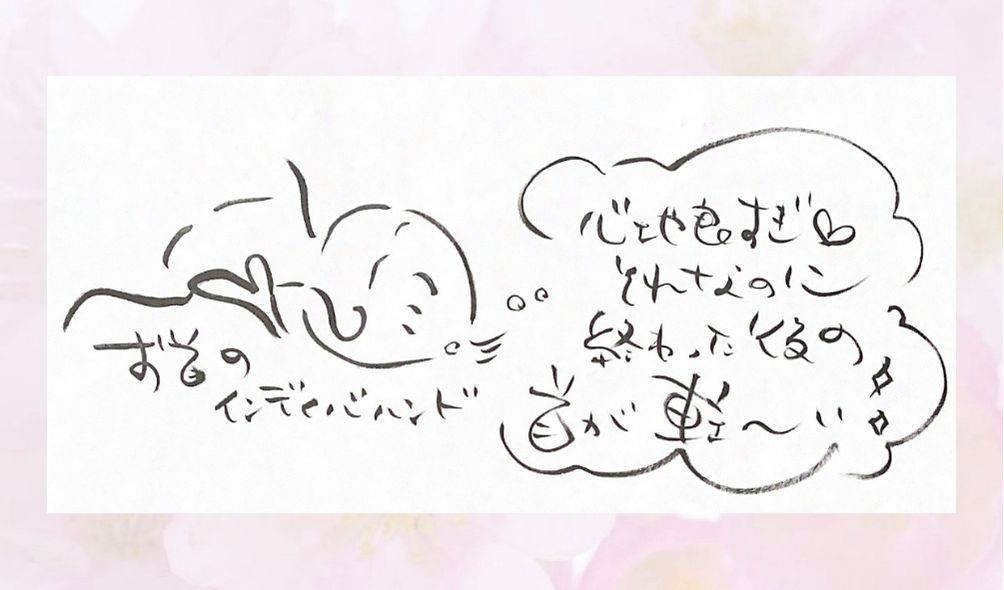 お首の
インディバハンド
心地良すぎ♡
それなのに
終わった後の
首が軽〜い